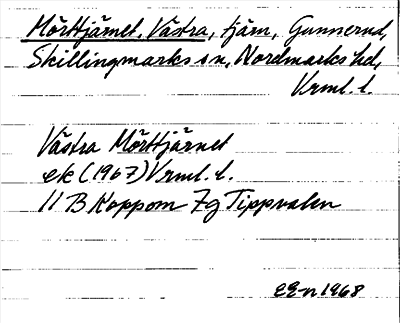 Mörttjärnet, Västra, tjärn, Gunnerud,
Skillingmarks sn, Nordmarks hd,
Vrml. l.
Västra Mörttjärnet
ek (1967) Vrml. l.
11 B Koppom 7g Tippvalen
EE-n 1968